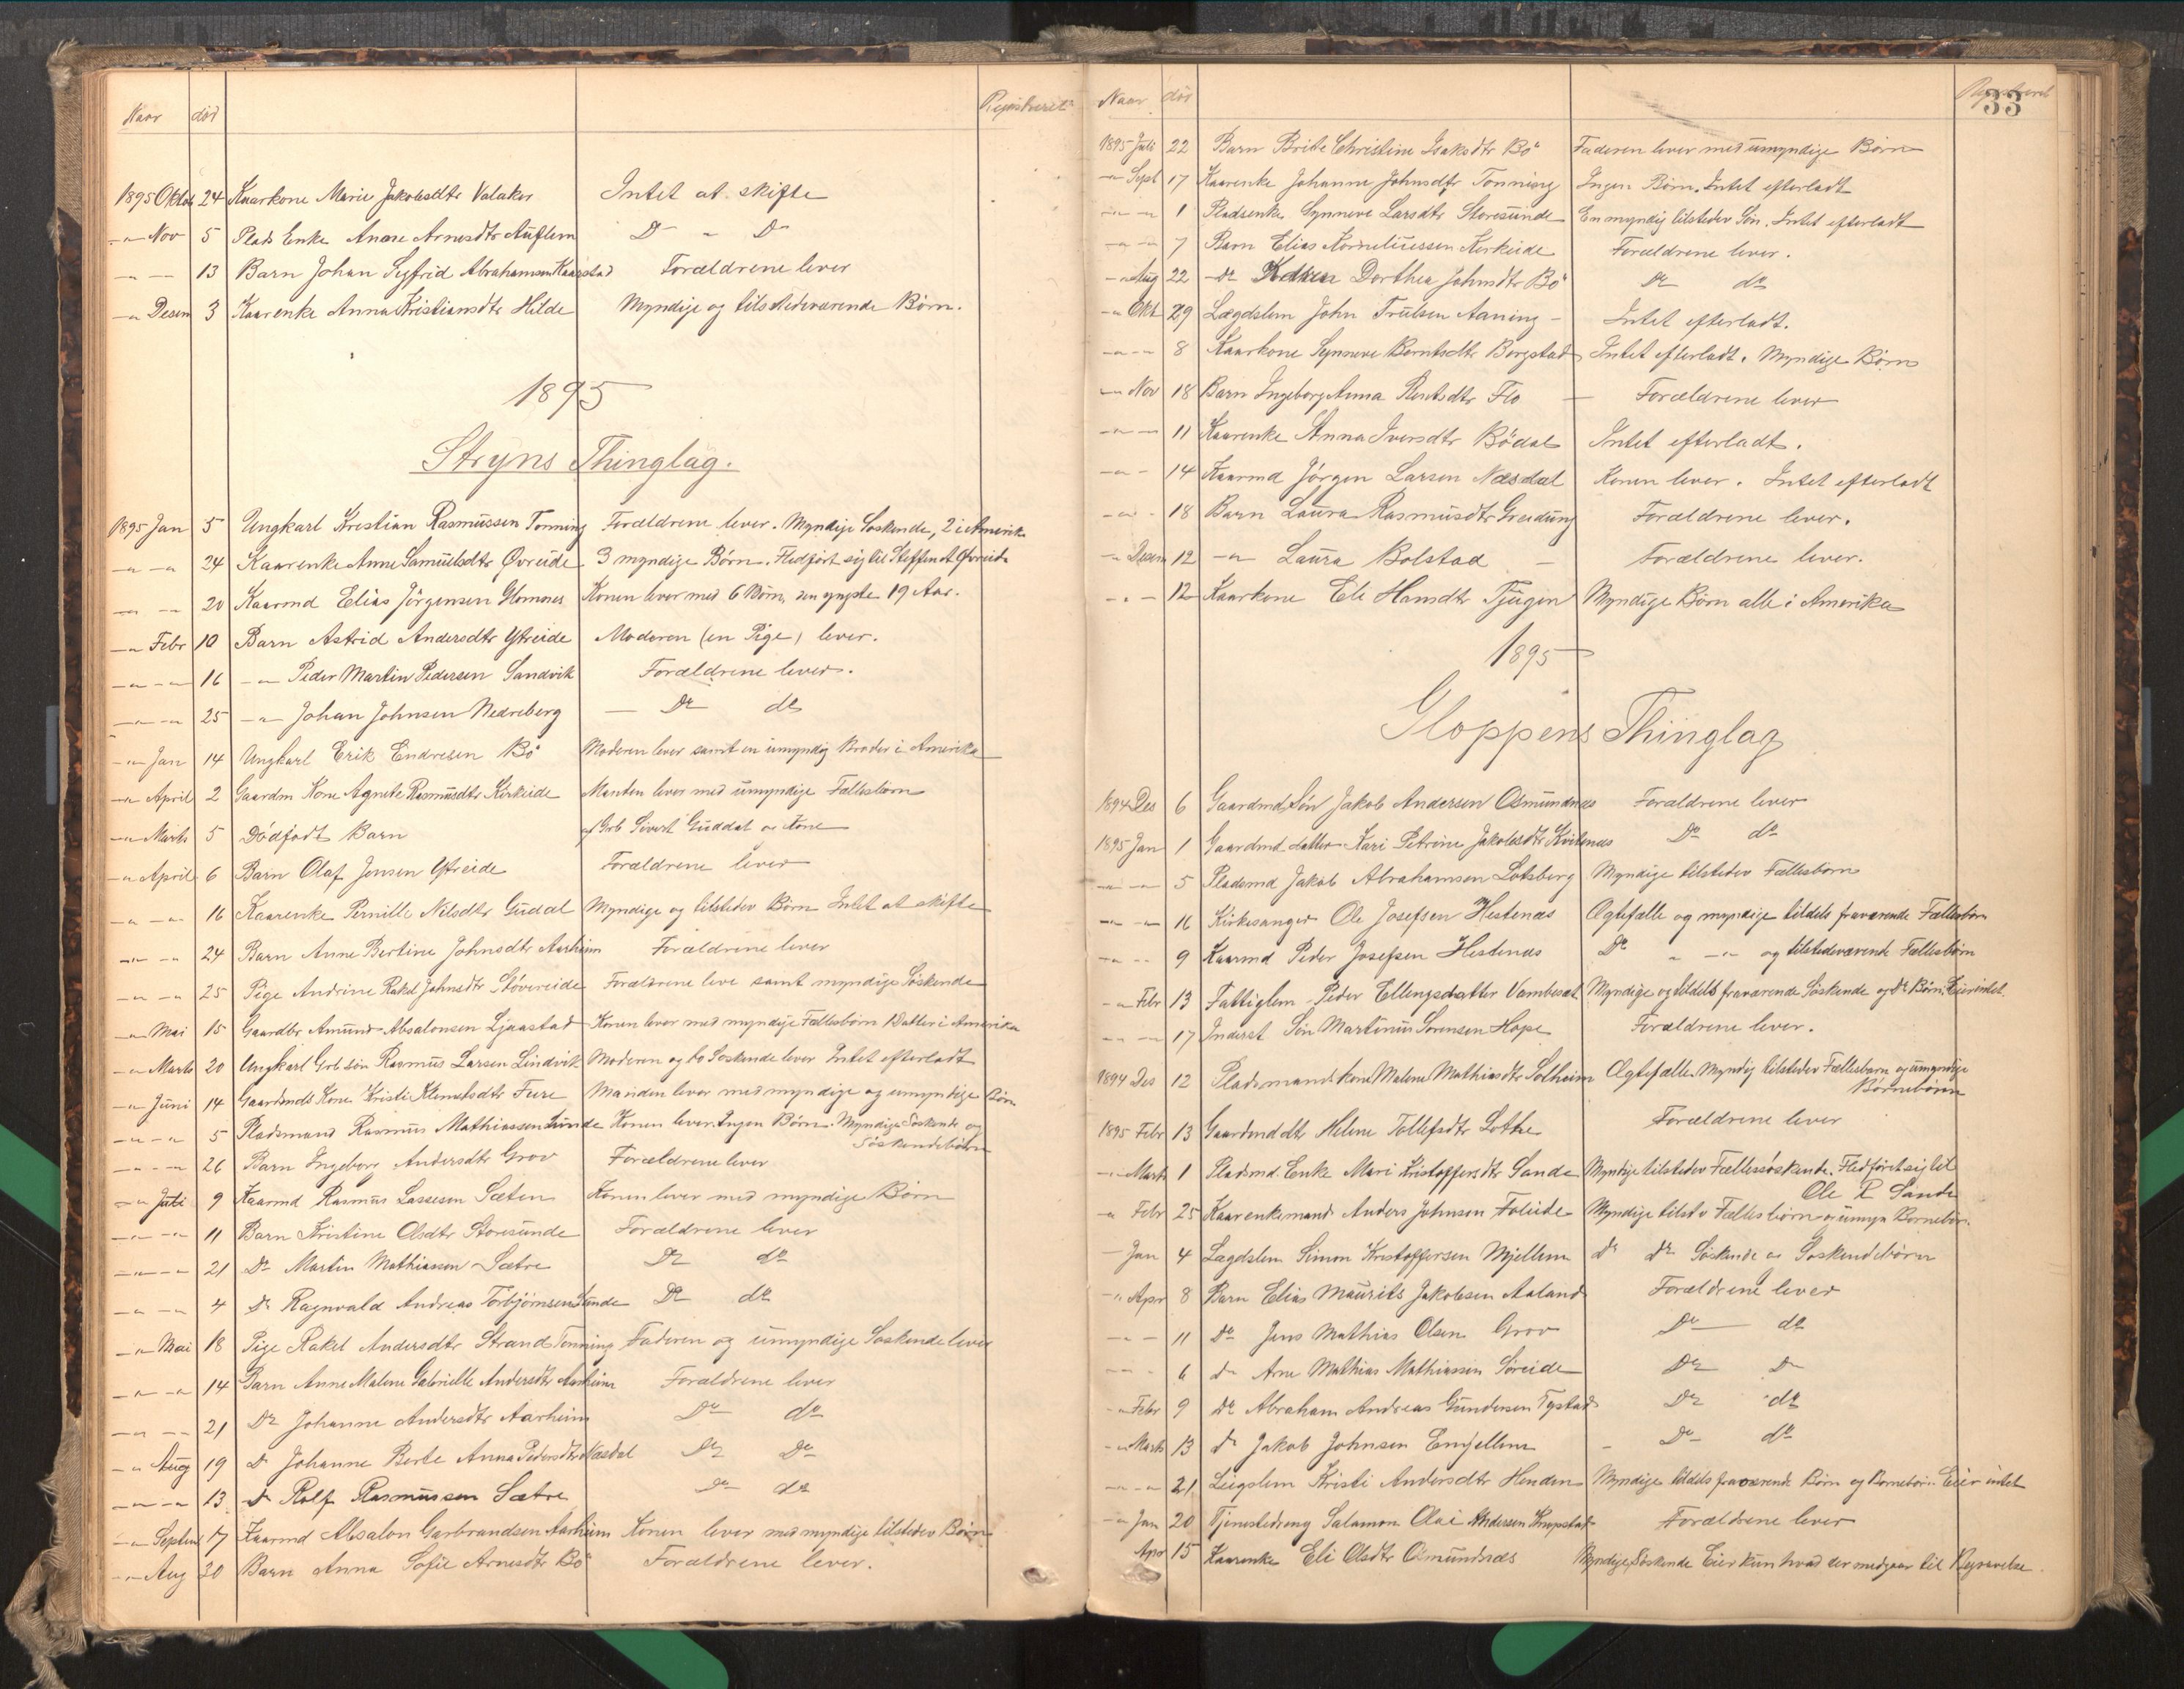 Naar død Registreret
1895 Oktob 24 Kaarkone Marie Jakobsdtr Valaker Intet at skifte
-"- Nov 5 Plads Enke Anne Arnesdtr Auflem Do - Do
-"- - 13 Barn Johan Sigfrid Abrahamsen Kaarstad Forældrene lever
-"- Desem 3 Kaarenke Anna Kristiansdtr Hilde Myndige og tilstedeværende Børn.
1895
Stryns Thinglag.
1895 Jan 5 Ungkarl Kristian Rasmussen Tonning Forældrene lever. Myndige Søskende, 2 i Amerika
-"- -"- 24 Kaarenke Anne Samuelsdtr Øvreeide 3 myndige Børn. Fledført sig til Steffen A Øvreide
-"- -"- 20 Kaarmd Elias Jörgensen Glomnes Konen lever med 6 Børn, den yngste 19 Aar.
-"- Febr 10 Barn Astrid Andersdtr Ytreide Moderen (en Pige) lever.
-"- -"- 16 -"- Peder Martin Pedersen Sandvik Forældrene lever.
-"- -"- 25 -"- Johan Johnsen Nedreberg — Do do
-"- Jan 14 Ungkarl Erik Endresen Bö Moderen lever samt en umyndig Broder i Amerika
-"- April 2 Gaardm Kone Agnete Rasmusdtr Kirkeide Manden lever med umyndige Fællesbørn
-"- Marts 5 Dödfødt Barn af Grb Sivert Guddal og Kone
-"- April 6 Barn Olaf Jensen Ytreide Forældrene lever
-"- -"- 16 Kaarenke Pernille Nilsdtr Gudal Myndige og tilstedev Børn Intet at skifte
-"- -"- 24 Barn Anne Bertine Johnsdtr Aarheim Forældrene lever
-"- -"- 25 Pige Andrine Rakel Johnsdtr Støvereide Forældrene leve samt myndige Søskende
-"- Mai 15 Gaardbr Amund Absalonsen Ljaastad Konen lever med myndige Fællesbørn 1 Datter i Amerika
-"- Marts 20 Ungkarl Grb søn Rasmus Larsen Lindvik Moderen og to Søskende lever Intet efterladt
-"- Juni 14 Gaardmds Kone Kristi Klemetsdtr Fure Manden lever med myndige og umyndige Børn
-"- -"- 5 Pladsmand Rasmus Mathiassen Sunde Konen lever Ingen Børn. Myndige Søskende og
Söskendebørn
-"- -"- 26 Barn Ingeborg Andersdtr Grov Forældrene lever
-"- Juli 9 Kaarmd Rasmus Lassesen Sæten Konen lever med myndige Børn
-"- -"- 11 Barn Kristine Olsdtr Storesunde Forældrene lever
-"- -"- 21 Do Martin Mathiassen Sætre Do do
-"- -"- 4 Do Ragnvald Andreas Torbjörnsen Sunde Do do
-"- Mai 18 Pige Rakel Andersdtr Strand Tonning Faderen og umyndige Søskende lever
-"- -"- 14 Barn Anne Malene Gabrielle Andersdtr Aarheim Forældrene lever
-"- -"- 21 Do Johanne Andersdtr Aarheim Do do
-"- Aug 19 Do Johanne Berte Anna Pedersdtr Næsdal Do Do
-"- -"- 13 Do Rolf Rasmussen Sætre Do do
-"- Septem 17 Kaarmd Absalon Garbrandsen Aarheim Konen lever med myndige tilstedev Børn
-"- Aug 30 Barn Anna Sofie Arnesdtr Bö Forældrene lever.
Naar død Registreret
33
1895 Juli 22 Barn Brite Christine Isaksdtr Bö Faderen lever med umyndige Børn
-"- Sept 17 Kaarenke Johanne Johnsdtr Tonning Ingen Børn. Intet efterladt
-"- -"- 1 Pladsenke Synneve Larsdtr Storesunde En myndig tilstedev Søn. Intet efterladt
-"- -"- 7 Barn Elias Korneliussen Kirkeide Forældrene lever.
-"- Aug 22 -Do Dorthea Johnsdtr Bö Do do
-"- Okt 29 Lægdslem John Trulsen Aaning - Intet efterladt.
-"- -"- 8 Kaarkone Synneve Berntsdtr Borgstad Intet efterladt. Myndige Børn
-"- Nov 18 Barn Ingeborg Anna Rentsdtr Flo — Forældrene lever
-"- -"- 11 Kaarenke Anna Iversdtr Bödal Intet efterladt.
-"- - 14 Kaarmd Jörgen Larsen Næsdal Konen lever. Intet efterladt
-"- - 18 Barn Laura Rasmusdtr Greidung Forældrene lever.
-"- Desem 12 -"- Laura Bolstad - Forældrene lever.
-"- - 12 Kaarkone Eli Hansdtr Tjugen Myndige Børn alle i Amerika
1895
Gloppens Thinglag
1894 Des 6 Gaardmd Søn Jakob Andersen Osmundnes Forældrene lever
1895 Jan 1 Gaardmd datter Kari Petrine Jakobsdtr Kvitenes Do do
-"- -"- 5 Pladsmd Jakob Abrahamsen Lotsberg Myndige tilstedev Fællesbørn
-"- -"- 16 Kirkesanger Ole Josefsen Hestenæs Ægtefælle og myndige tildels fraværende Fællesbørn
-"- - 9 Kaarmd Peder Josefsen Hestenæs Do " -"- og tilstedeværende Fællesbørn
-"- Febr 13 Fattiglem Peder Ellingsdatter Vambeset Myndige og tildels fraværende Søskende og Do Børn. Eier intet.
-"- - 17 Inderst Søn Martinus Sørensen Hope Forældrene lever.
1894 Des 12 Pladsmandskone Malene Mathiasdtr Solheim Ægtefælle Myndig tilstedev Fællesbarn og umyndige
Børnebörn
1895 Febr 13 Gaardmddtr Helene Tollefsdtr Lothe Forældrene lever
-"- Marts 1 Pladsmd Enke Mari Kristoffersdtr Sande Myndige tilstedev Fællessøskende. Fledføret sig til
Ole R Sande
-"- Febr 25 Kaarenkemand Anders Johnsen Foleide Myndige tilst v Fællesbörn og umyn Børnebör.
- Jan 4 Lægdslem Simon Kristoffersen Mjellem Do Do Søskende og Søskendebörn
-"- Apr 8 Barn Elias Maurits Jakobsen Aaland Forældrene lever
-"- - 11 Do Jens Mathias Olsen Grov Do do
-"- - 6 do Arne Mathias Mathiassen Søreide Do Do
-"- Febr 9 do Abraham Andreas Gundersen Tystad Do do
-"- Marts 13 do Jakob Johnsen Emjellem - Do do
-"- -"- 21 Leigslem Kristi Andersdtr Henden Myndige tildels fraværende Børn og Børnebörn Eier intet
-"- Jan 20 Tjenestedreng Salamon Olai Andersen Forældrene lever
Apr 15 Kaarenke Eli Olsdtr Osmundnæs Myndige Søskende Eier kun hvad der medgaar til Begravelse.